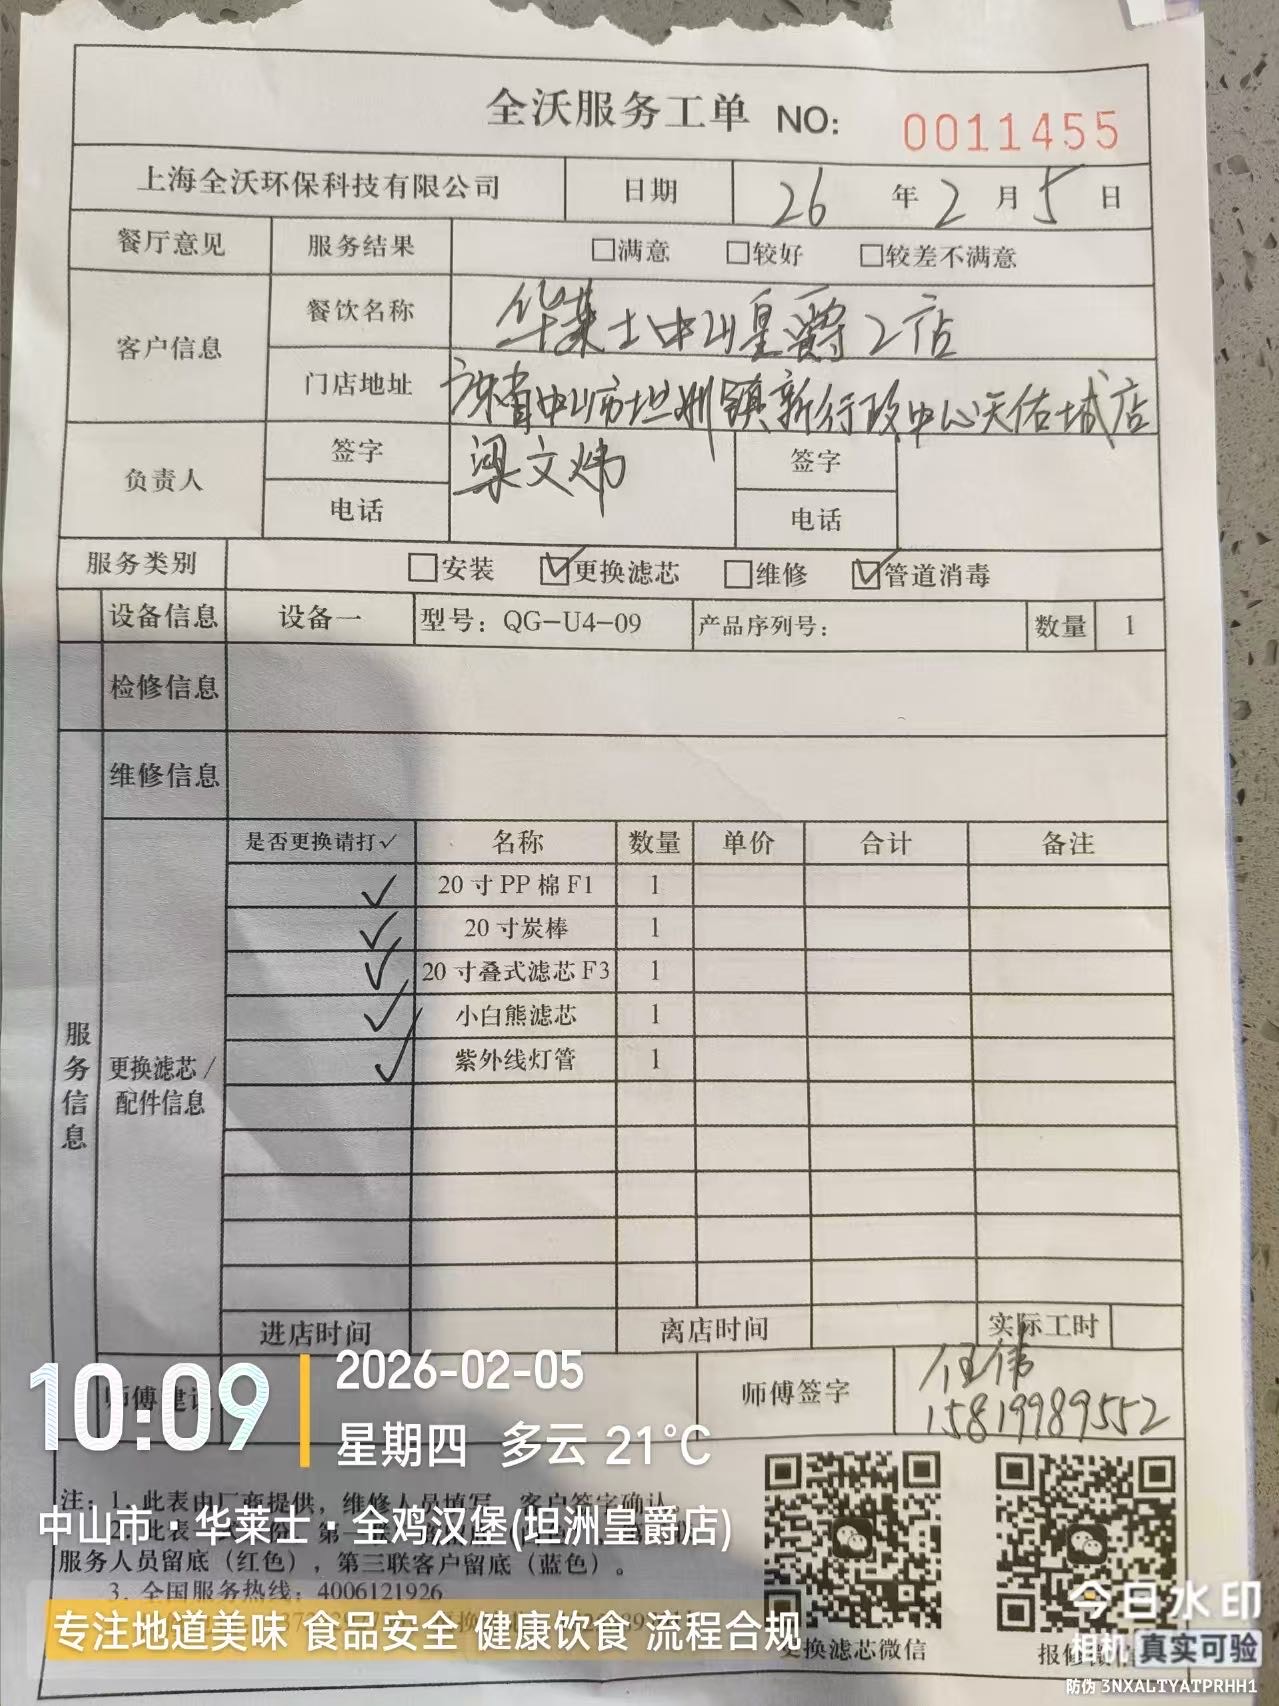 全沃服务工单 NO: 0011455
上海全沃环保科技有限公司 日期 26 年 2 月 5 日
餐厅意见 服务结果 □满意 □较好 □较差不满意
客户信息 餐饮名称 华莱士中山皇爵2店
门店地址 广东省中山市坦洲镇新行政中心天佑城店
负责人 签字 梁文炜 签字
电话 电话
服务类别 □安装 ☑更换滤芯 □维修 ☑管道消毒
设备信息 设备一 型号：QG-U4-09 产品序列号： 数量 1
检修信息
维修信息
服务信息
更换滤芯/配件信息
是否更换请打✓ 名称 数量 单价 合计 备注
✓ 20寸PP棉F1 1
✓ 20寸炭棒 1
✓ 20寸叠式滤芯F3 1
✓ 小白熊滤芯 1
✓ 紫外线灯管 1
进店时间 离店时间 实际工时
师傅建议 师傅签字 伍伟
15819989552
注：1、此表由厂商提供，维修人员填写，客户签字确认。
服务人员留底（红色），第三联客户留底（蓝色）。
3、全国服务热线：4006121926
更换滤芯微信 报修微信
10:09 2026-02-05
星期四 多云 21°C
中山市·华莱士·全鸡汉堡(坦洲皇爵店)
专注地道美味 食品安全 健康饮食 流程合规
今日水印
相机 真实可验
防伪 3NXALTYATPRHH1